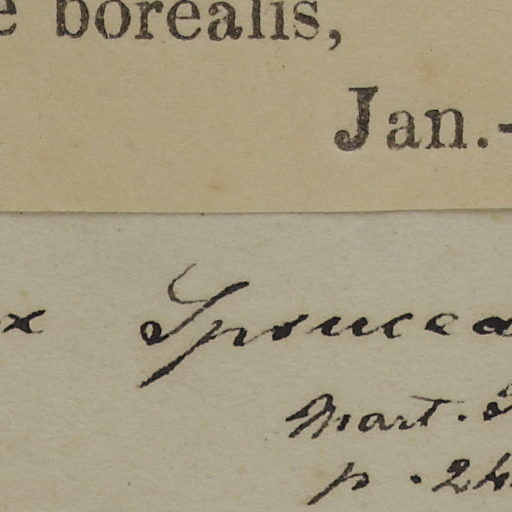 e borealis,
Jan.-
x Sprucea
Mart.
p. 24